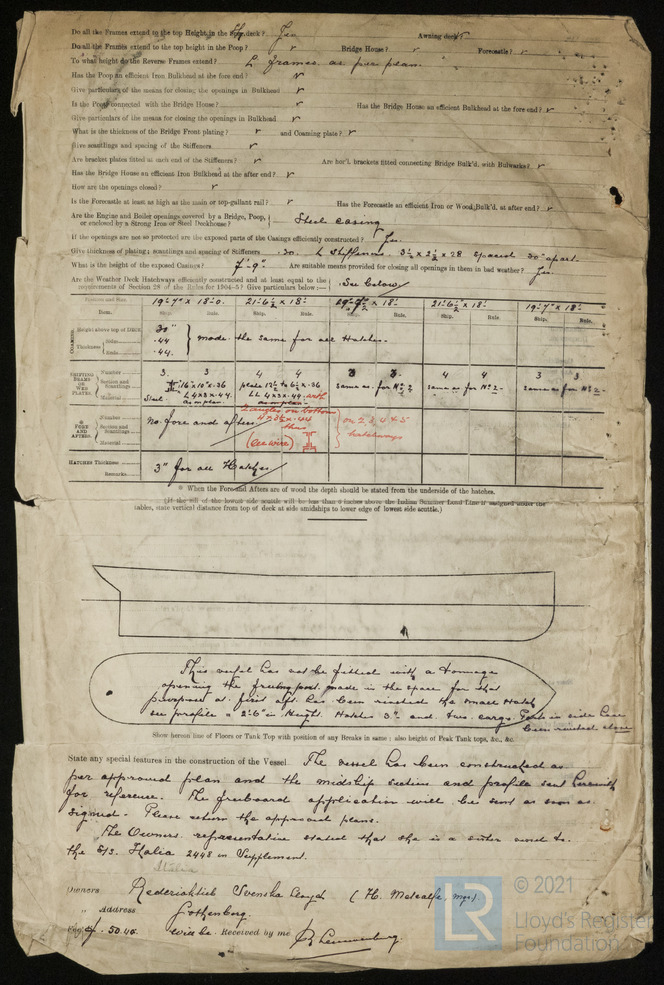 Do all the Frames extend to the top Height in the deck? Yes Awning deck?
Do all the Frames extend to the top height in the Poop? Bridge House? Forecastle?
To what height do the Reverse Frames extend? L frames as per plan.
Has the Poop an efficient Iron Bulkhead at the fore end?
Give particulars of the means for closing the openings in Bulkhead
Is the Poop connected with the Bridge House? Has the Bridge House an efficient Bulkhead at the fore end?
Give particulars of the means for closing the openings in Bulkhead
What is the thickness of the Bridge Front plating? and Coaming plate?
Give scantlings and spacing of the Stiffeners
Are bracket plates fitted at each end of the Stiffeners? Are hor'l. brackets fitted connecting Bridge Bulk'd. with Bulwarks?
Has the Bridge House an efficient Iron Bulkhead at the after end?
How are the openings closed?
Is the Forecastle at least as high as the main or top-gallant rail? Has the Forecastle an efficient Iron or Wood Bulk'd. at after end?
Are the Engine and Boiler openings covered by a Bridge, Poop,
or enclosed by a Strong Iron or Steel Deckhouse? Steel casing
If the openings are not so protected are the exposed parts of the Casings efficiently constructed? Yes.
Give thickness of plating; scantlings and spacing of Stiffeners .30. L stiffeners. 3½ x 2½ x 28 spaced 30" apart.
What is the height of the exposed Casings? 7'-9". Are suitable means provided for closing all openings in them in bad weather? Yes.
Are the Weather Deck Hatchways efficiently constructed and at least equal to the
requirements of Section 28 of the Rules for 1904-5? Give particulars below:— See below
Position and Size. 19'-7" x 18'-0. 21'-6½ x 18'- 21'-6½ x 18'- 19'-7" x 18'-
Item. Ship. Rule. Ship. Rule. Ship. Rule. Ship. Rule. Ship. Rule.
COAMING Height above top of Deck 30"
Thickness Sides .44 made the same for all Hatches.
Ends .44.
SHIFTING BEAMS OR WEB PLATES. Number 3 3 4 4 3 3. 4 4 3 3
Section and Scantlings 16"x10"x.36 plate 12½ to 6½ x .36 same as for Nº 2. same as for Nº 2 - same as for Nº 2 -
Material Steel. L 4x3x.44. as in plan. LL 4x3x.44. with as in plan -
2 angles on bottom
* FORE AND AFTERS. Number no. fore and afters 4 x 3½ x .44 on 2, 3, 4 & 5
Section and Scantlings thus hatchways
Material (see wire)
HATCHES Thickness 3" for all Hatches
Remarks.
* When the Fore-and-Afters are of wood the depth should be stated from the underside of the hatches.
(If the sill of the lowest side scuttle will be less than 6 inches above the Indian Summer Load Line if assigned under the
tables, state vertical distance from top of deck at side amidships to lower edge of lowest side scuttle.)
This vessel has not be fitted with a tonnage
opening the freeing port made in the space for that
purpose at first aft has been riveted the small Hatch
see profile is 2'-6" in height. Hatches 3" and two cargo Ports in side have
been riveted close
Show hereon line of Floors or Tank Top with position of any Breaks in same; also height of Peak Tank tops, &c., &c.
State any special features in the construction of the Vessel The vessel has been constructed as
per approved plan and the midship section and profile sent herewith
for reference. The freeboard application will be sent as soon as
signed. Please return the approved plans.
The Owners representative stated that she is a sister vessel to
the S/S. Italia 2448 in Supplement.
Italia
Owners Rederiaktieb Svenska Lloyd (H. Metcalfe, mgr).
" Address Gothenborg.
50.40. will be Received by me
LR
© 2021
Lloyd's Register
Foundation